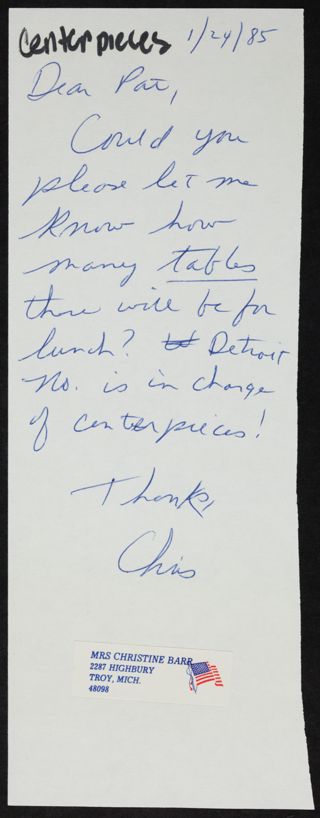 Centerpieces 1/24/85
Dear Pat,
Could you
please let me
know how
many tables
there will be for
lunch? Detroit
No. is in charge
of centerpieces!
Thanks,
Chris
MRS CHRISTINE BARR
2287 HIGHBURY
TROY, MICH.
48098